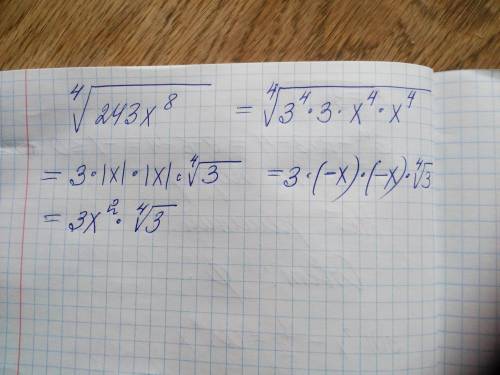 ⁴√(243x⁸) = ⁴√(3⁴·3·x⁴·x⁴)
= 3·|x|·|x|·⁴√3 = 3·(-x)·(-x)·⁴√3
= 3x²·⁴√3